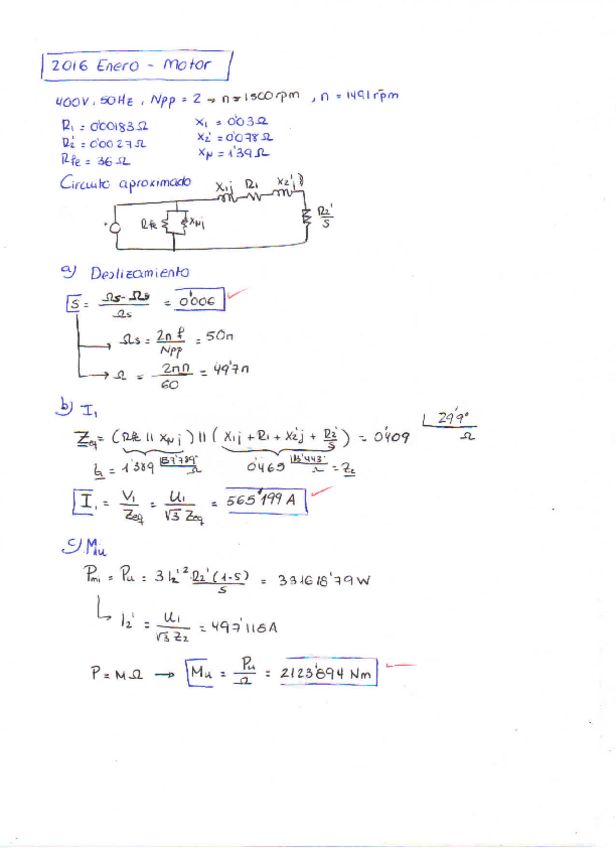 2016 Enero - Motor
400V, 50Hz, Npp = 2 → n = 1500rpm, n = 1491rpm
R1 = 0'00183Ω X1 = 0'03Ω
R2' = 0'0027Ω X2' = 0'078Ω
Rfe = 36Ω XN = 1'39Ω
Circuito aproximado
X1j R1 X2'j
Rfe XNj R2'/S
a) Deslizamiento
S = (Ωs - Ωs)/Ωs = 0'006
Ωs = 2π f/Npp = 50π
Ω = 2πn/60 = 49'7π
b) I1
Zeq = (Rfe || XNj) || (X1j + R1 + X2'j + R2'/S) = 0'409 ∟29'9° Ω
= 1'389 Ω 0'465 Ω = Z2
I1 = V1/Zeq = U1/(√3 Zeq) = 565'199 A
c) Mu
Pmi = Pu = 3 I2'² R2'(1-S)/S = 331618'79W
I2' = U1/(√3 Z2) = 497'115A
P = MΩ → Mu = Pu/Ω = 2123'894 Nm